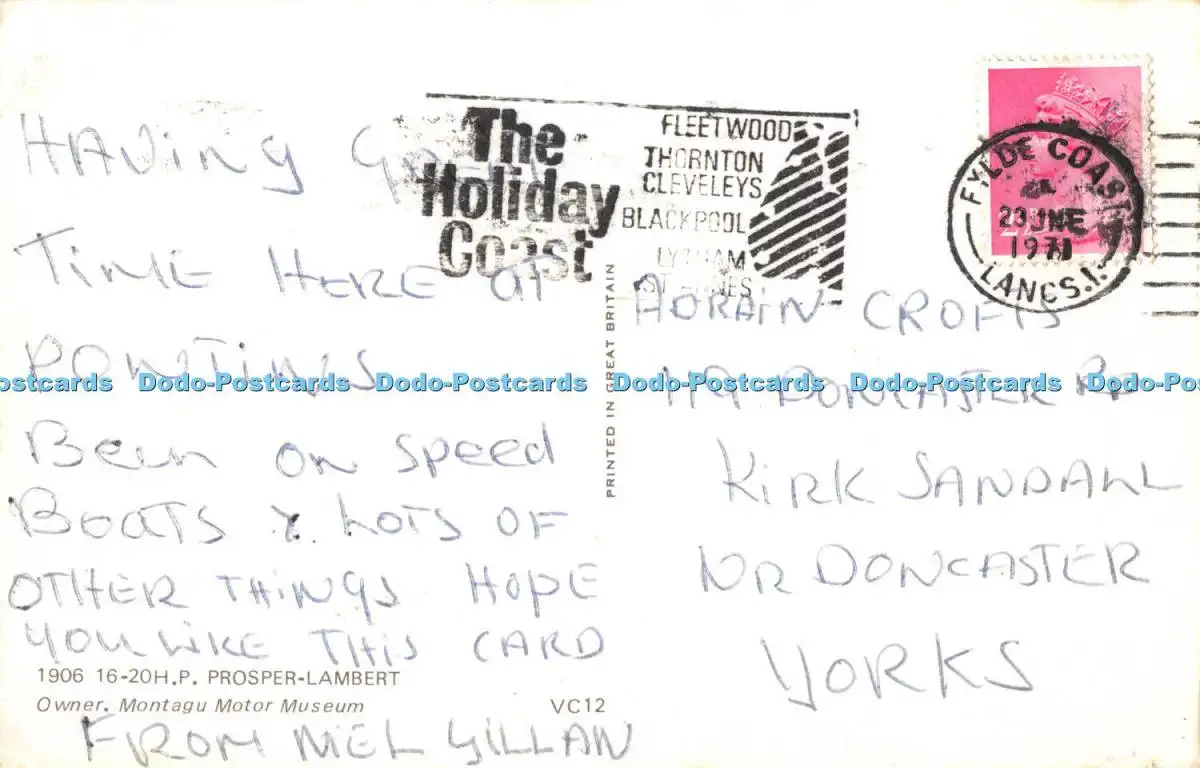 The
Holiday
Coast
FLEETWOOD
THORNTON
CLEVELEYS
BLACKPOOL
LYTHAM
ST ANNES
FYLDE COAST
23 JNE
1971
LANCS.
HAVING
TIME HERE AT
PONTINS
BEEN ON SPEED
BOATS & LOTS OF
OTHER THINGS HOPE
YOU LIKE THIS CARD
1906 16-20H.P. PROSPER-LAMBERT
Owner. Montagu Motor Museum
VC12
FROM MEL GILLAN
PRINTED IN GREAT BRITAIN
ADRAIN CROFTS
119 DONCASTER RD
KIRK SANDALL
NR DONCASTER
YORKS
Dodo-Postcards Dodo-Postcards Dodo-Postcards Dodo-Postcards Dodo-Postcards